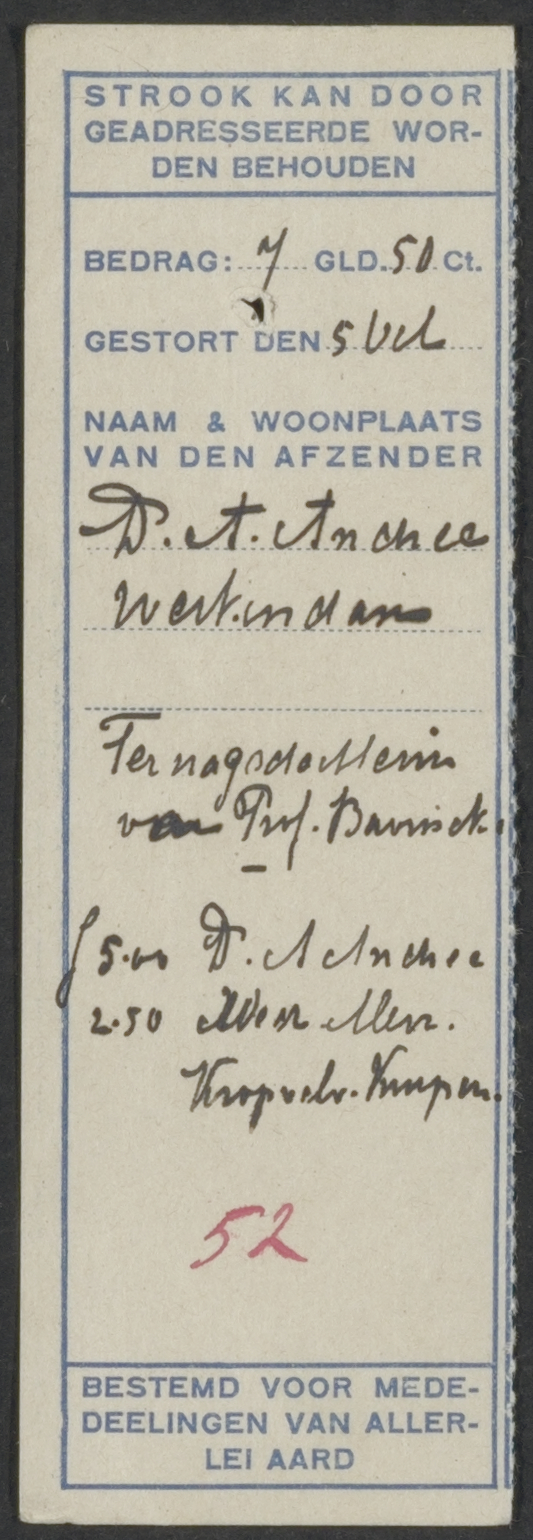 STROOK KAN DOOR
GEADRESSEERDE WOR-
DEN BEHOUDEN
BEDRAG: 7 GLD. 50 Ct.
GESTORT DEN 5 Oct
NAAM & WOONPLAATS
VAN DEN AFZENDER
D. A. Andree
Werkendam
Ter nagedachtenis
van Prof. Bavinck.
f 5.00 D. A Andree
2.50 Mevr.
52
BESTEMD VOOR MEDE-
DEELINGEN VAN ALLER-
LEI AARD